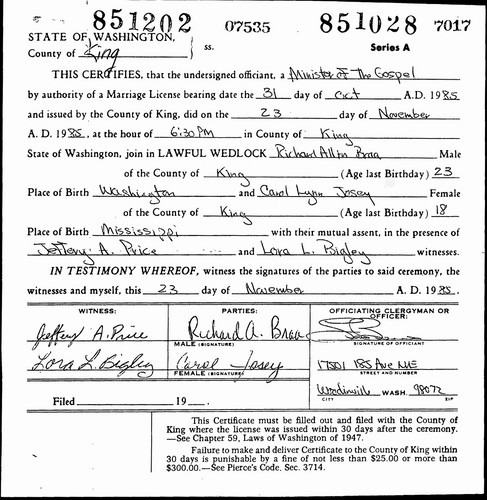 851202 07535 851028 7017
STATE OF WASHINGTON,
County of King ss. Series A
THIS CERTIFIES, that the undersigned officiant, a Minister of The Gospel
by authority of a Marriage License bearing date the 31 day of Oct A.D. 1985
and issued by the County of King, did on the 23 day of November
A. D. 1985, at the hour of 6:30 PM in County of King
State of Washington, join in LAWFUL WEDLOCK Richard Allin Braa Male
of the County of King (Age last Birthday) 23
Place of Birth Washington and Carol Lynn Josey Female
of the County of King (Age last Birthday) 18
Place of Birth Mississippi with their mutual assent, in the presence of
Jeffery A. Price and Lora L. Bigley witnesses.
IN TESTIMONY WHEREOF, witness the signatures of the parties to said ceremony, the
witnesses and myself, this 23 day of November A.D. 1985.
WITNESS: PARTIES: OFFICIATING CLERGYMAN OR OFFICER:
Jeffery A. Price Richard A. Braa
MALE (SIGNATURE) SIGNATURE OF OFFICIANT
Lora L. Bigley Carol Josey 17501 185 Ave NE
FEMALE (SIGNATURE) STREET AND NUMBER
Woodinville WASH. 98072
Filed 19 CITY ZIP
This Certificate must be filled out and filed with the County of
King where the license was issued within 30 days after the ceremony.
—See Chapter 59, Laws of Washington of 1947.
Failure to make and deliver Certificate to the County of King within
30 days is punishable by a fine of not less than $25.00 or more than
$300.00.—See Pierce's Code, Sec. 3714.